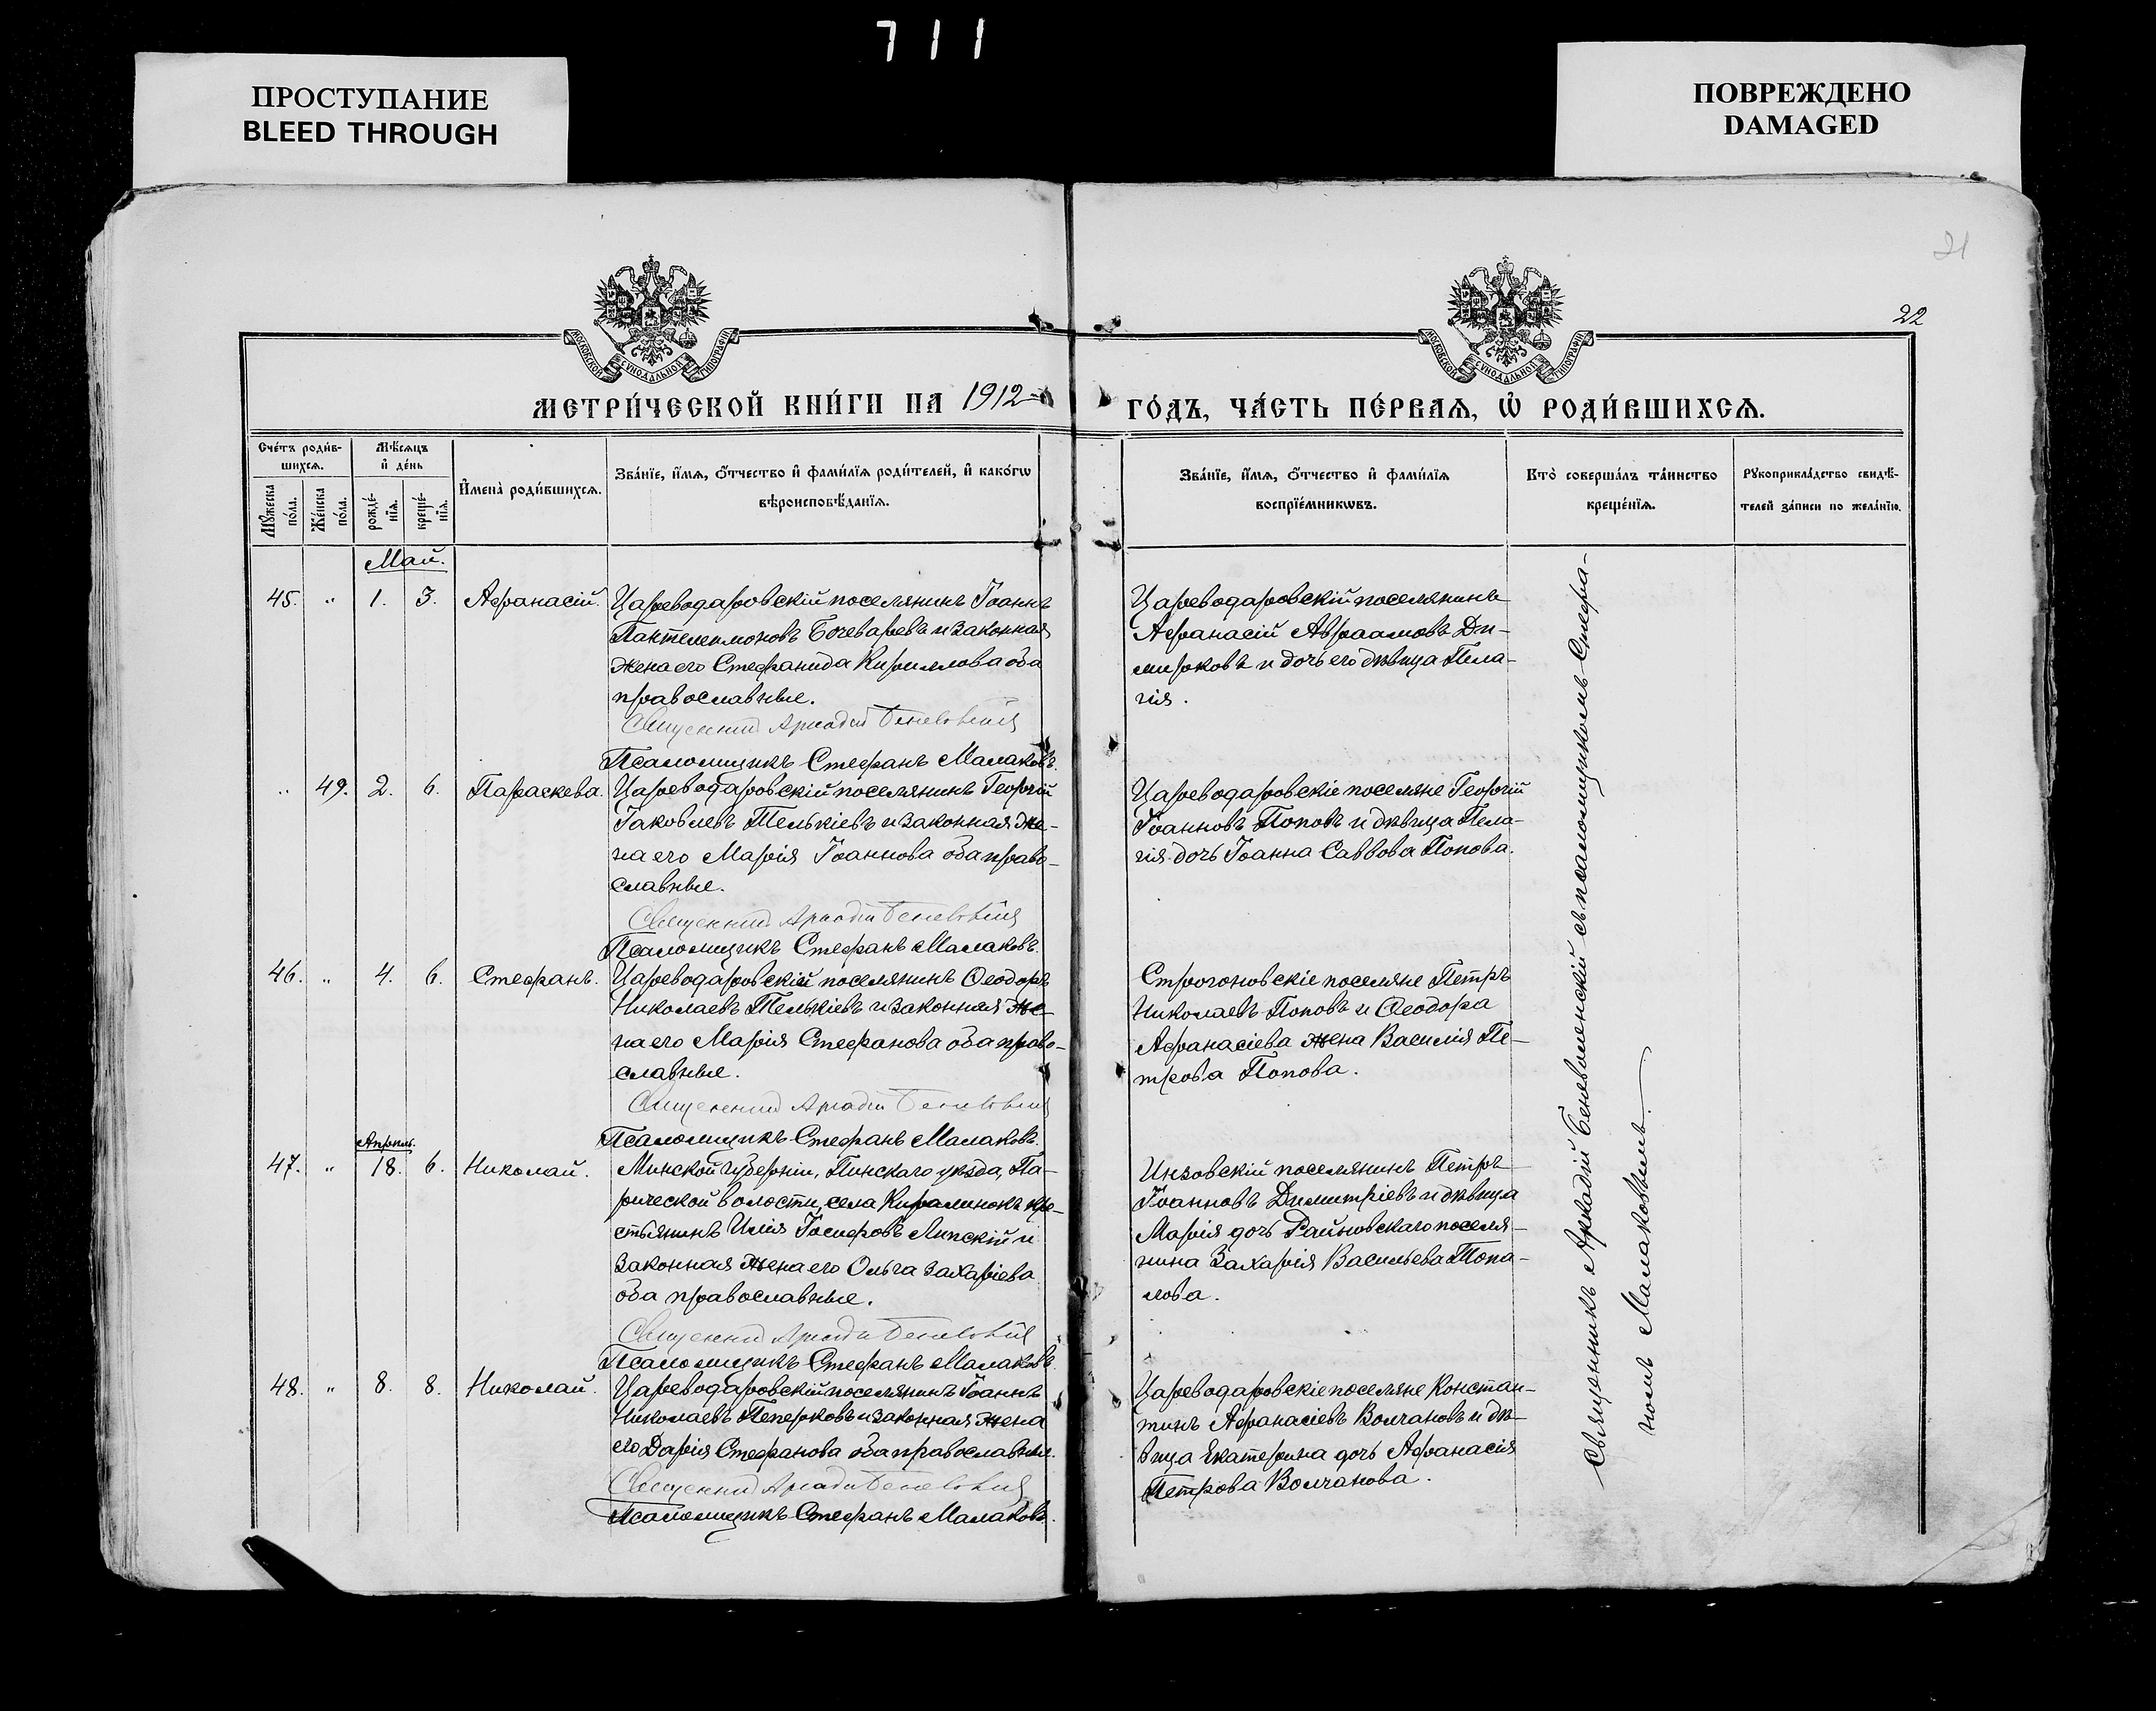 711
ПРОСТУПАНИЕ
BLEED THROUGH
ПОВРЕЖДЕНО
DAMAGED
21
22
МОСКОВСКОЙ СѴНОДАЛЬНОЙ ТИПОГРАФІИ
МОСКОВСКОЙ СѴНОДАЛЬНОЙ ТИПОГРАФІИ
МЕТРИ́ЧЕСКОЙ КНИ́ГИ НА 1912
ГО́ДЪ, ЧА́СТЬ ПЕ́РВАѦ, Ѽ РОДИ́ВШИХСѦ.
Сче́тъ роди́в-
шихсѧ.
Мꙋ́жеска
по́ла.
Же́нска
по́ла.
Мѣ́сѧцъ
и҆ де́нь
рожде́-
нїѧ.
креще́-
нїѧ.
И҆мена̀ роди́вшихсѧ.
Зва́нїе, и҆́мѧ, ѻ҆́тчество и҆ фами́лїѧ роди́телей, и҆ како́гѡ
вѣроисповѣ́данїѧ.
Зва́нїе, и҆́мѧ, ѻ҆́тчество и҆ фами́лїѧ
воспрїе́мникѡвъ.
Кто̀ соверша́лъ та́инство
креще́нїѧ.
Рꙋкоприкла́дство свидѣ́-
телей за́писи по жела́нїю.
Май.
45. " 1. 3. Аѳанасій.
Цареводаровскій поселянинъ Іоаннъ
Пантелеимоновъ Бочеваревъ и законная
жена его Стефанида Кириллова оба
православные.
Священник Аркадій Беневоленскій
Псаломщикъ Стефанъ Малаковъ.
Цареводаровскій поселянинъ
Аѳанасій Авраамовъ Ди-
мирковъ и дочь его дѣвица Пела-
гія.
" 49. 2. 6. Параскева.
Цареводаровскій поселянинъ Георгій
Іаковлевъ Телькіевъ и законная же-
на его Марія Іоаннова оба право-
славные.
Священник Аркадій Беневоленскій
Псаломщикъ Стефанъ Малаковъ.
Цареводаровскіе поселяне Георгій
Іоанновъ Поповъ и дѣвица Пела-
гія дочь Іоанна Саввова Попова.
46. " 4. 6. Стефанъ.
Цареводаровскій поселянинъ Ѳеодоръ
Николаевъ Телькіевъ и законная же-
на его Марія Стефанова оба право-
славные.
Священник Аркадій Беневоленскій
Псаломщикъ Стефанъ Малаковъ.
Строгоновскіе поселяне Петръ
Николаевъ Поповъ и Ѳеодора
Аѳанасіева жена Василія Пе-
трова Попова.
Апрѣль.
47. " 18. 6. Николай.
Минской губерніи, Пинскаго уѣзда, Па-
рической волости, села Киралинокъ кре-
стьянинъ Илія Іосифовъ Липскій и
законная жена его Ольга Захаріева
оба православные.
Священник Аркадій Беневоленскій
Псаломщикъ Стефанъ Малаковъ.
Инзовскій поселянинъ Петръ
Іоанновъ Димитріевъ и дѣвица
Марія дочь Райновскаго поселя-
нина Захарія Васильева Топа-
лова.
48. " 8. 8. Николай.
Цареводаровскій поселянинъ Іоаннъ
Николаевъ Пеперковъ и законная жена
его Дарія Стефанова оба православные.
Священник Аркадій Беневоленскій
Псаломщикъ Стефанъ Малаковъ.
Цареводаровскіе поселяне Констан-
тинъ Аѳанасіевъ Волчановъ и дѣ-
вица Екатерина дочь Аѳанасія
Петрова Волчанова.
Священникъ Аркадій Беневоленскій съ псаломщикомъ Стефа-
номъ Малаковымъ.